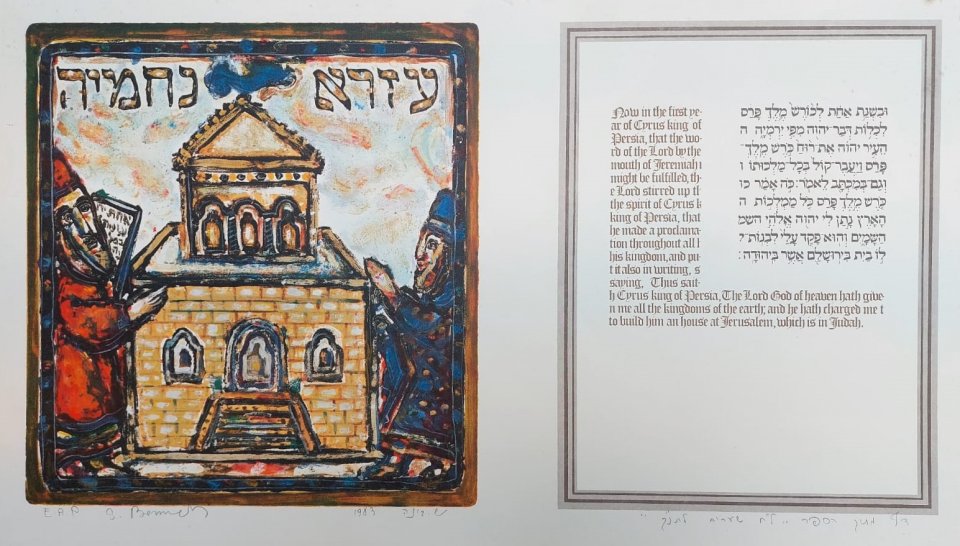 עזרא נחמיה
Now in the first ye-
ar of Cyrus king of
Persia, that the wo-
rd of the Lord by the
mouth of Jeremiah i
might be fulfilled, th-
e Lord stirred up th
the spirit of Cyrus k
king of Persia, that
he made a proclama
tion throughout all h
his kingdom, and pu
t it also in writing, s
saying, Thus sait-
h Cyrus king of Persia, The Lord God of heaven hath give
n me all the kingdoms of the earth; and he hath charged me t
to build him an house at Jerusalem, which is in Judah.
וּבִשְׁנַת אַחַת לְכוֹרֶשׁ מֶלֶךְ פָּרַס
לִכְלוֹת דְּבַר יְהוָה מִפִּי יִרְמְיָה ה
הֵעִיר יְהוָה אֶת־רוּחַ כֹּרֶשׁ מֶלֶךְ־
פָּרַס וַיַּעֲבֶר־קוֹל בְּכָל־מַלְכוּתוֹ ו
וְגַם־בְּמִכְתָּב לֵאמֹר׃ כֹּה אָמַר כּו
כֹּרֶשׁ מֶלֶךְ פָּרַס כֹּל מַמְלְכוֹת ה
הָאָרֶץ נָתַן לִי יְהוָה אֱלֹהֵי השמ
הַשָּׁמָיִם וְהוּא־פָקַד עָלַי לִבְנוֹת־ל
לוֹ בַיִת בִּירוּשָׁלַ͏ִם אֲשֶׁר בִּיהוּדָה׃
E.A.P 1983
דף מתוך הספר ,, ל"ח שערים לתנ"ך"